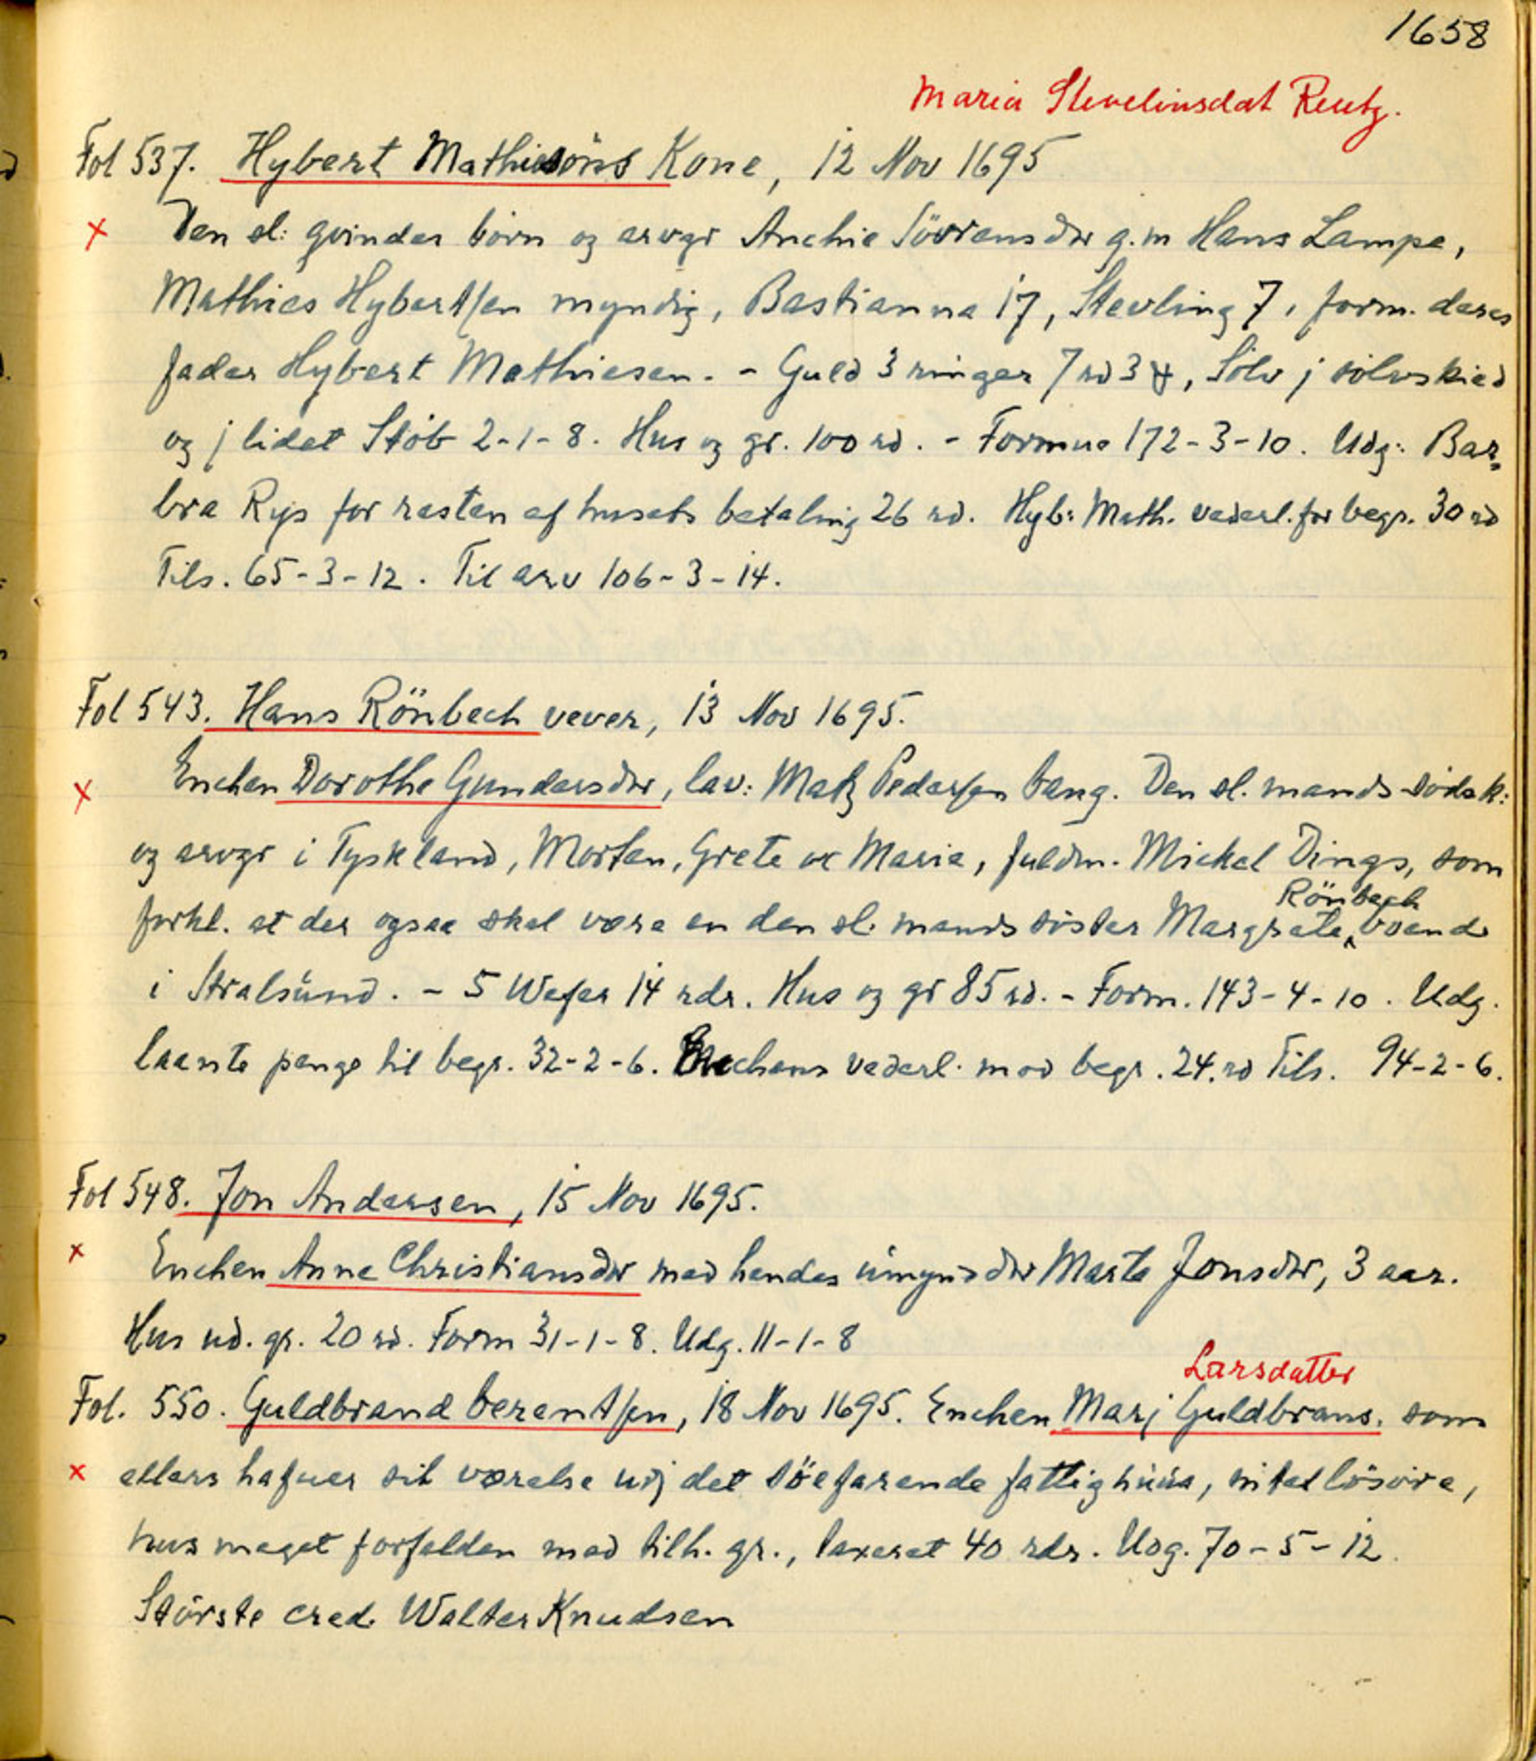 1658
Maria Stevelinsdat Reutz.
Fol 537. Hybert Mathiesöns Kone, 12 Nov 1695
x Den sl: qvindes börn og arvgr Anchie Sövrensdtr g.m Hans Lampe,
Mathies Hybertsen myndig, Bastianna 17, Stevling 7, form. deres
fader Hybert Mathiesen. - Guld 3 ringer 7 rd 3 ort, Sölv j sölvskied
og j lidet Stöb 2-1-8. Hus og gr. 100 rd. - Formue 172-3-10. Udg: Bar-
bra Rys for resten af husets betaling 26 rd. Hyb: Math. vederl. for begr. 30 rd
Tils. 65-3-12. Til arv 106-3-14.
Fol 543. Hans Rönbech vever, 13 Nov 1695.
x Enchen Dorothe Gundersdtr, lav: Matz Pedersen bang. Den sl. mands södsk:
og arvgr i Tyskland, Morten, Grete oc Marie, fuldm. Mickel Dings, som
Rönbech
forkl. at der ogsaa skal være en den sl. mands söster Margrete, boend
i Stralsünd. - 5 Wefer 14 rdr. Hus og gr 85 rd. - Form. 143-4-10. Udg.
laante penge til begr. 32-2-6. Enchens vederl. mod begr. 24 rd Tils. 94-2-6.
Fol 548. Jon Andersen, 15 Nov 1695.
x Enchen Anne Christiansdtr med hendes umynd dtr Marte Jonsdtr, 3 aar.
Hus ud. gr. 20 rd. Form 31-1-8. Udg. 11-1-8
Larsdatter
Fol. 550. Guldbrand berentsen, 18 Nov 1695. Enchen Marj Guldbrans. som
x ellers hafuer sit værelse udj det söefarende fattighüüs, intet lösöre,
hus meget forfalden med tilh. gr., taxeret 40 rdr. Udg. 70-5-12.
Störste cred. Walter Knudsen